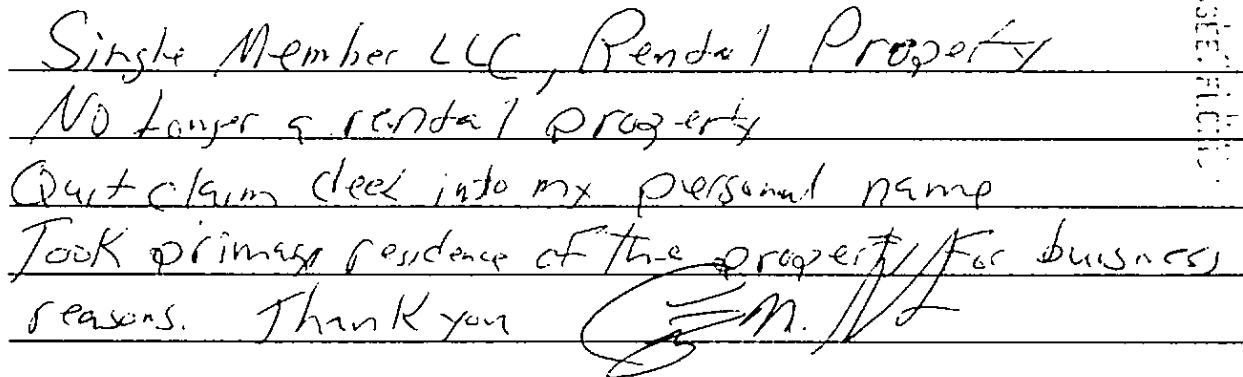 Single Member LLC, Rental Property
No Longer a rental property
Quitclaim deed into my personal name
Took primary residence of the property for buisness
reasons. Thank you